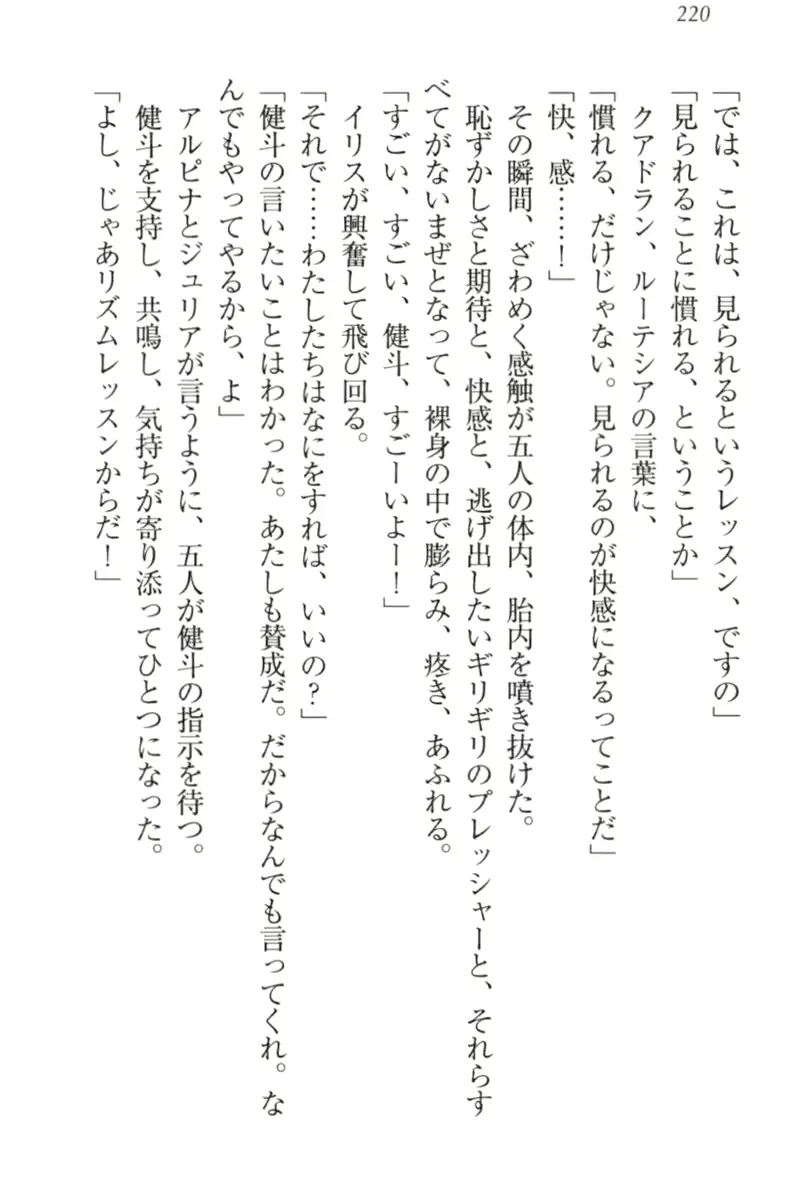 220
「では、これは、見られるというレッスン、ですの」
「見られることに慣れる、ということか」
クアドラン、ルーテシアの言葉に、
「慣れる、だけじゃない。見られるのが快感になるってことだ」
「快、感……！」
その瞬間、ざわめく感触が五人の体内、胎内を噴き抜けた。
恥ずかしさと期待と、快感と、逃げ出したいギリギリのプレッシャーと、それらす
べてがないまぜとなって、裸身の中で膨らみ、疼き、あふれる。
「すごい、すごい、健斗、すごーいよー！」
イリスが興奮して飛び回る。
「それで……わたしたちはなにをすれば、いいの？」
「健斗の言いたいことはわかった。あたしも賛成だ。だからなんでも言ってくれ。な
んでもやってやるから、よ」
アルピナとジュリアが言うように、五人が健斗の指示を待つ。
健斗を支持し、共鳴し、気持ちが寄り添ってひとつになった。
「よし、じゃあリズムレッスンからだ！」